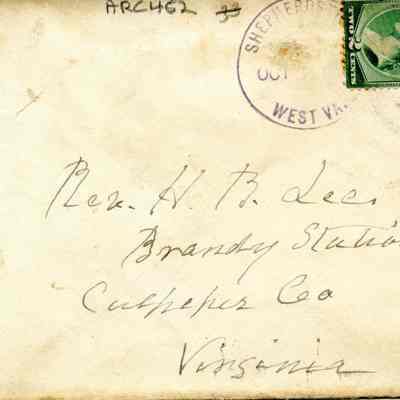 ARC462
SHEPHERDS
OCT
WEST VA.
TWO CENTS
Rev. H. B. Lee.
Brandy Statio
Culpeper Co
Virginia